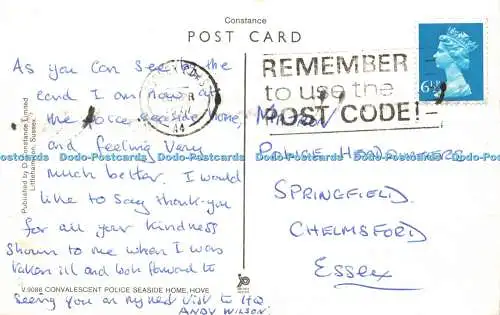 Constance
POST CARD
As you can see by the
card I am now at
the Police Seaside Home,
and feeling very
much better. I would
like to say thank-you
for all your kindness
shown to me when I was
taken ill and look forward to
seeing you on my next visit to HQ
ANDY WILSON.
Published by D. Constance Limited
Littlehampton, Sussex
V.9086 CONVALESCENT POLICE SEASIDE HOME, HOVE
REMEMBER
to use the
POST CODE!
6½P
POLICE HEADQUARTERS
SPRINGFIELD.
CHELMSFORD
Essex
Dodo-Postcards Dodo-Postcards Dodo-Postcards Dodo-Postcards Dodo-Postcards